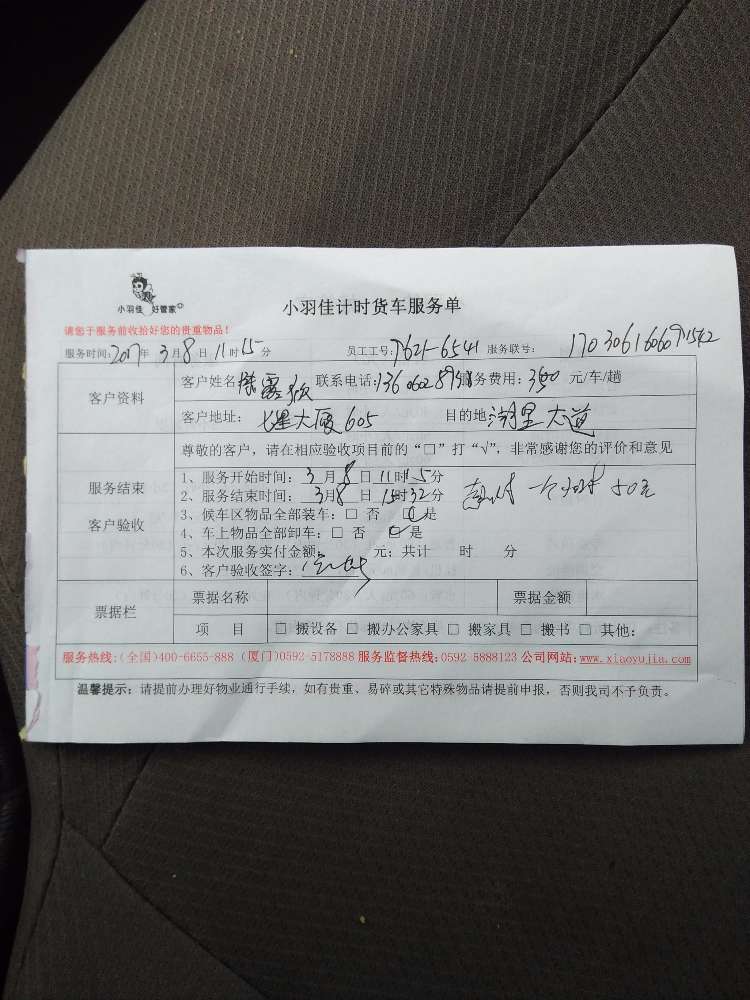 小羽佳 好管家
小羽佳计时货车服务单
请您于服务前收拾好您的贵重物品！
服务时间：2017年 3月 8日 11时15分 员工工号：7621-6541 服务联号：
客户资料
客户姓名： 联系电话： 服务费用：300 元/车/趟
客户地址：七星大厦605 目的地：湖里大道
尊敬的客户，请在相应验收项目前的“□”打“√”，非常感谢您的评价和意见
服务结束
客户验收
1、服务开始时间：3月8日11时15分
2、服务结束时间：3月8日15时32分
3、候车区物品全部装车：□ 否 ☑是
4、车上物品全部卸车：□ 否 ☑是
5、本次服务实付金额： 元；共计 时 分
6、客户验收签字：
票据栏
票据名称 票据金额
项 目 □ 搬设备 □ 搬办公家具 □ 搬家具 □ 搬书 □ 其他：
服务热线：(全国)400-6655-888 (厦门)0592-5178888 服务监督热线：0592-5888123 公司网站：www.xiaoyujia.com
温馨提示：请提前办理好物业通行手续，如有贵重、易碎或其它特殊物品请提前申报，否则我司不予负责。